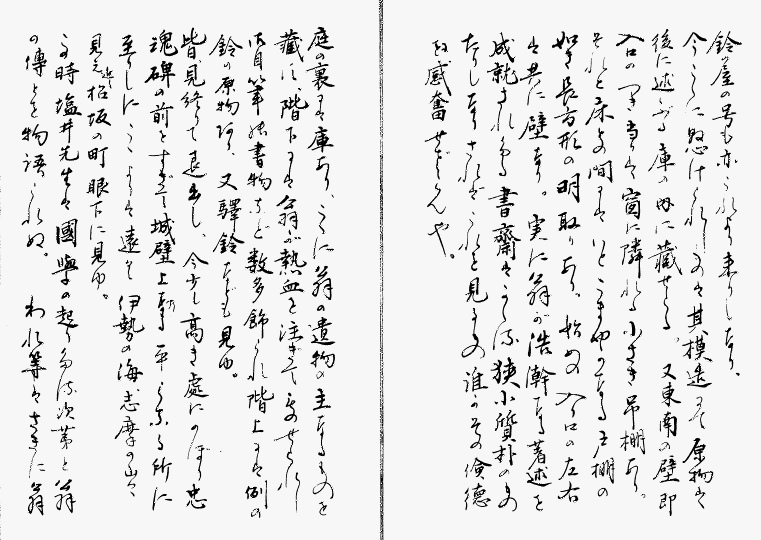 鈴の屋の号も亦これより来りしなり。
今こゝに懸けられしものは其模造にて原物は
後に述ぶる庫の内に蔵せる。又東南の壁即
入口のつき当りは窗に隣れる小さき吊棚あり。
それと床との間にはいとこまやかなる戸棚の
如き長方形の明取りあり。始めの入口の左右
は共に壁なり。実に翁が浩瀚なる著述を
成就されたる書斎はかゝる狭小質朴のもの
なりしなりされどこれを見るもの誰かその倹徳
に感奮せざらんや。
庭の裏に庫あり、こゝに翁の遺物の主なるものを
蔵す、階下には翁が熱血を注ぎて
自筆の書物など数多飾られ階上には例の
鈴の原物あり、又驛鈴なども見ゆ。
皆見終りて退出し、今少し高き處にのぼり忠
魂碑の前をすぎて城壁上なる平らなる所に
至りしにこゝよりは遠く伊勢の海志摩の山々
見え近く松坂の町眼下に見ゆ。
この時塩井先生は國學の起りたる次第と翁
の傳とを物語られぬ。われ等はさきに翁